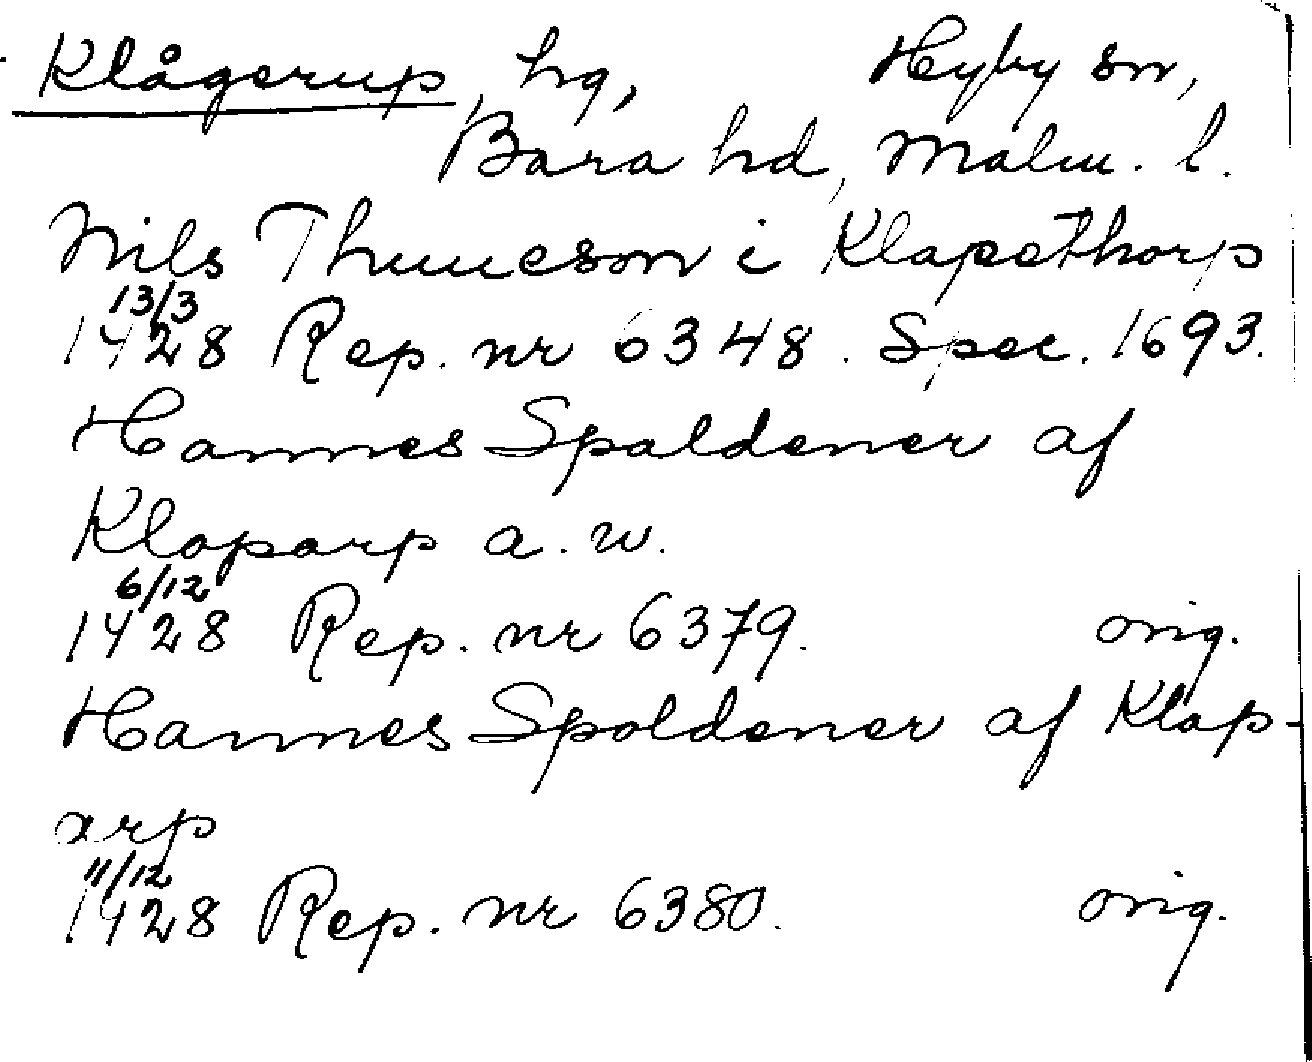 Klågerup, hg, Hyby sn,
Bara hd, Malm. l.
Nils Thuuesøn i Klapethorp
13/3
1428 Rep. nr 6348. Spec. 1693.
Hannes Spaldener af
Klaparp a. w.
6/12
1428 Rep. nr 6379. orig.
Hannes Spoldener af Klap-
arp
11/12
1428 Rep. nr 6380. orig.